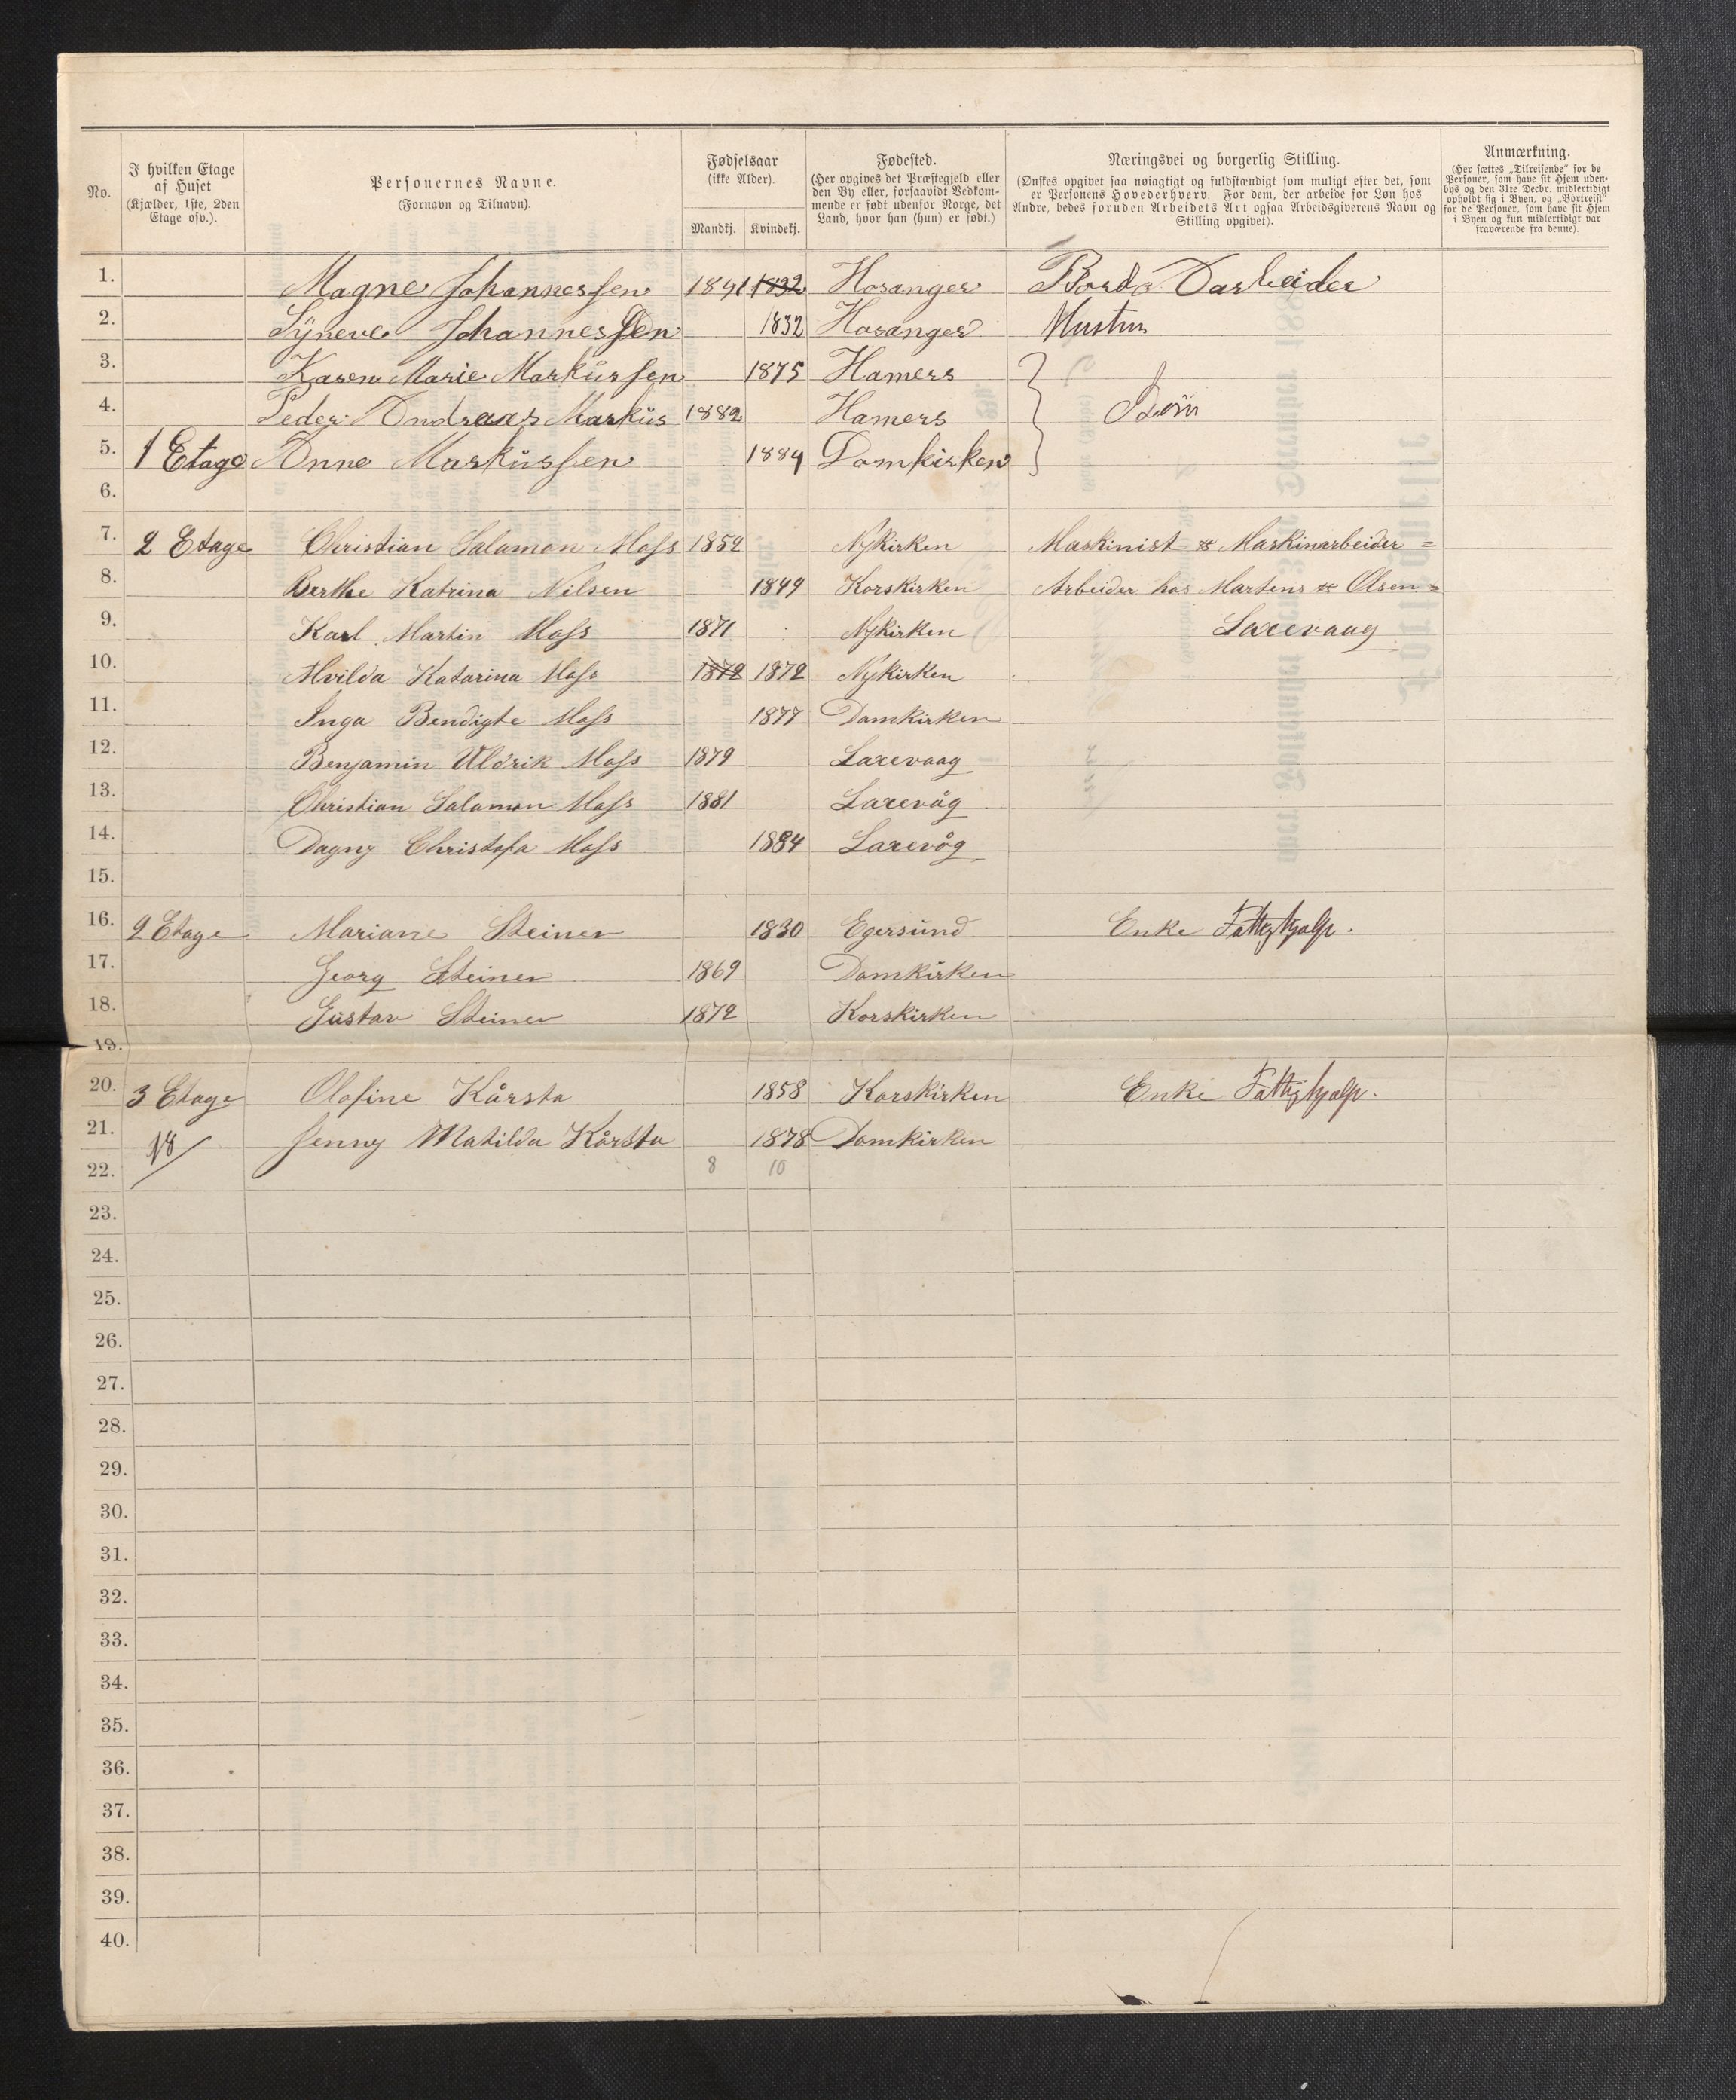 No.
I hvilken Etage af Huset (Kjælder, 1ste, 2den Etage osv.).
Personernes Navne. (Fornavn og Tilnavn).
Fødselsaar (ikke Alder).
Mandkj. Kvindekj.
Fødested. (Her opgives det Præstegjeld eller den By eller, forsaavidt Vedkommende er født udenfor Norge, det Land, hvor han (hun) er født.)
Næringsvei og borgerlig Stilling. (Ønskes opgivet saa nøiagtigt og fuldstændigt som muligt efter det, som er Personens Hovederhverv. For dem, der arbeide for Løn hos Andre, bedes foruden Arbeidets Art ogsaa Arbeidsgiverens Navn og Stilling opgivet).
Anmærkning. (Her sættes „Tilreisende“ for de Personer, som have sit Hjem udenbys og den 31te Decbr. midlertidigt opholdt sig i Byen, og „Bortreist“ for de Personer, som have sit Hjem i Byen og kun midlertidigt var fraværende fra denne).
1. Magne Johannessen 1841 1832 Hosanger
2. Syneve Johannessen 1832 Hosanger Hustru
3. Karen Marie Markussen 1875 Hamers
4. Peder Andreas Markus 1882 Hamers Børn
5. 1 Etage Anne Markussen 1884 Domkirken
6.
7. 2 Etage Christian Salamon Mass 1852 Nykirken Maskinist & Maskinarbeider =
8. Berthe Katrina Nilsen 1849 Korskirken Arbeider hos Martens & Olsen =
9. Karl Martin Mass 1871 Nykirken Laxevaag
10. Alvilda Katarina Mass 1872 1872 Nykirken
11. Inga Bendigte Mass 1877 Domkirken
12. Benjamin Uldrik Mass 1879 Laxevaag
13. Christian Salamon Mass 1881 Laxevåg
14. Dagny Christofa Mass 1884 Laxevåg
15.
16. 2 Etage Mariane Steiner 1830 Egersund Enke Fattighjælp.
17. Georg Steiner 1869 Domkirken
18. Gustav Steiner 1872 Korskirken
19.
20. 3 Etage Olafine Kårsta 1858 Korskirken Enke Fattighjælp.
21. 18 Jenny Matilda Kårsta 1878 Domkirken
22. 8 10
23.
24.
25.
26.
27.
28.
29.
30.
31.
32.
33.
34.
35.
36.
37.
38.
39.
40.